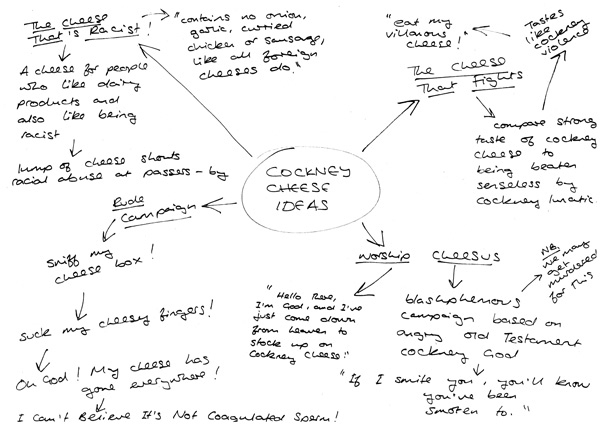 The Cheese
That is Racist!
"contains no onion,
garlic, curried
chicken or sausage,
like all foreign
cheeses do."
A cheese for people
who like dairy
products and
also like being
racist
lump of cheese shouts
racial abuse at passers-by
"eat my
villainous
cheese!"
Tastes
like
cockney
violence
The Cheese
That Fights
compare strong
taste of cockney
cheese to
being beaten
senseless by
cockney lunatic.
COCKNEY
CHEESE
IDEAS
Rude
campaign
sniff my
cheese box!
suck my cheesy fingers!
Oh God! My cheese has
gone everywhere!
I Can't Believe It's Not Coagulated Sperm!
worship cheesus
"Hello there,
I'm God, and I've
just come down
from heaven to
stock up on
Cockney Cheese!"
blasphemous
campaign based on
angry Old Testament
cockney God
NB.
we may
get
murdered
for this
"If I smite you, you'll know
you've been
smoten to."